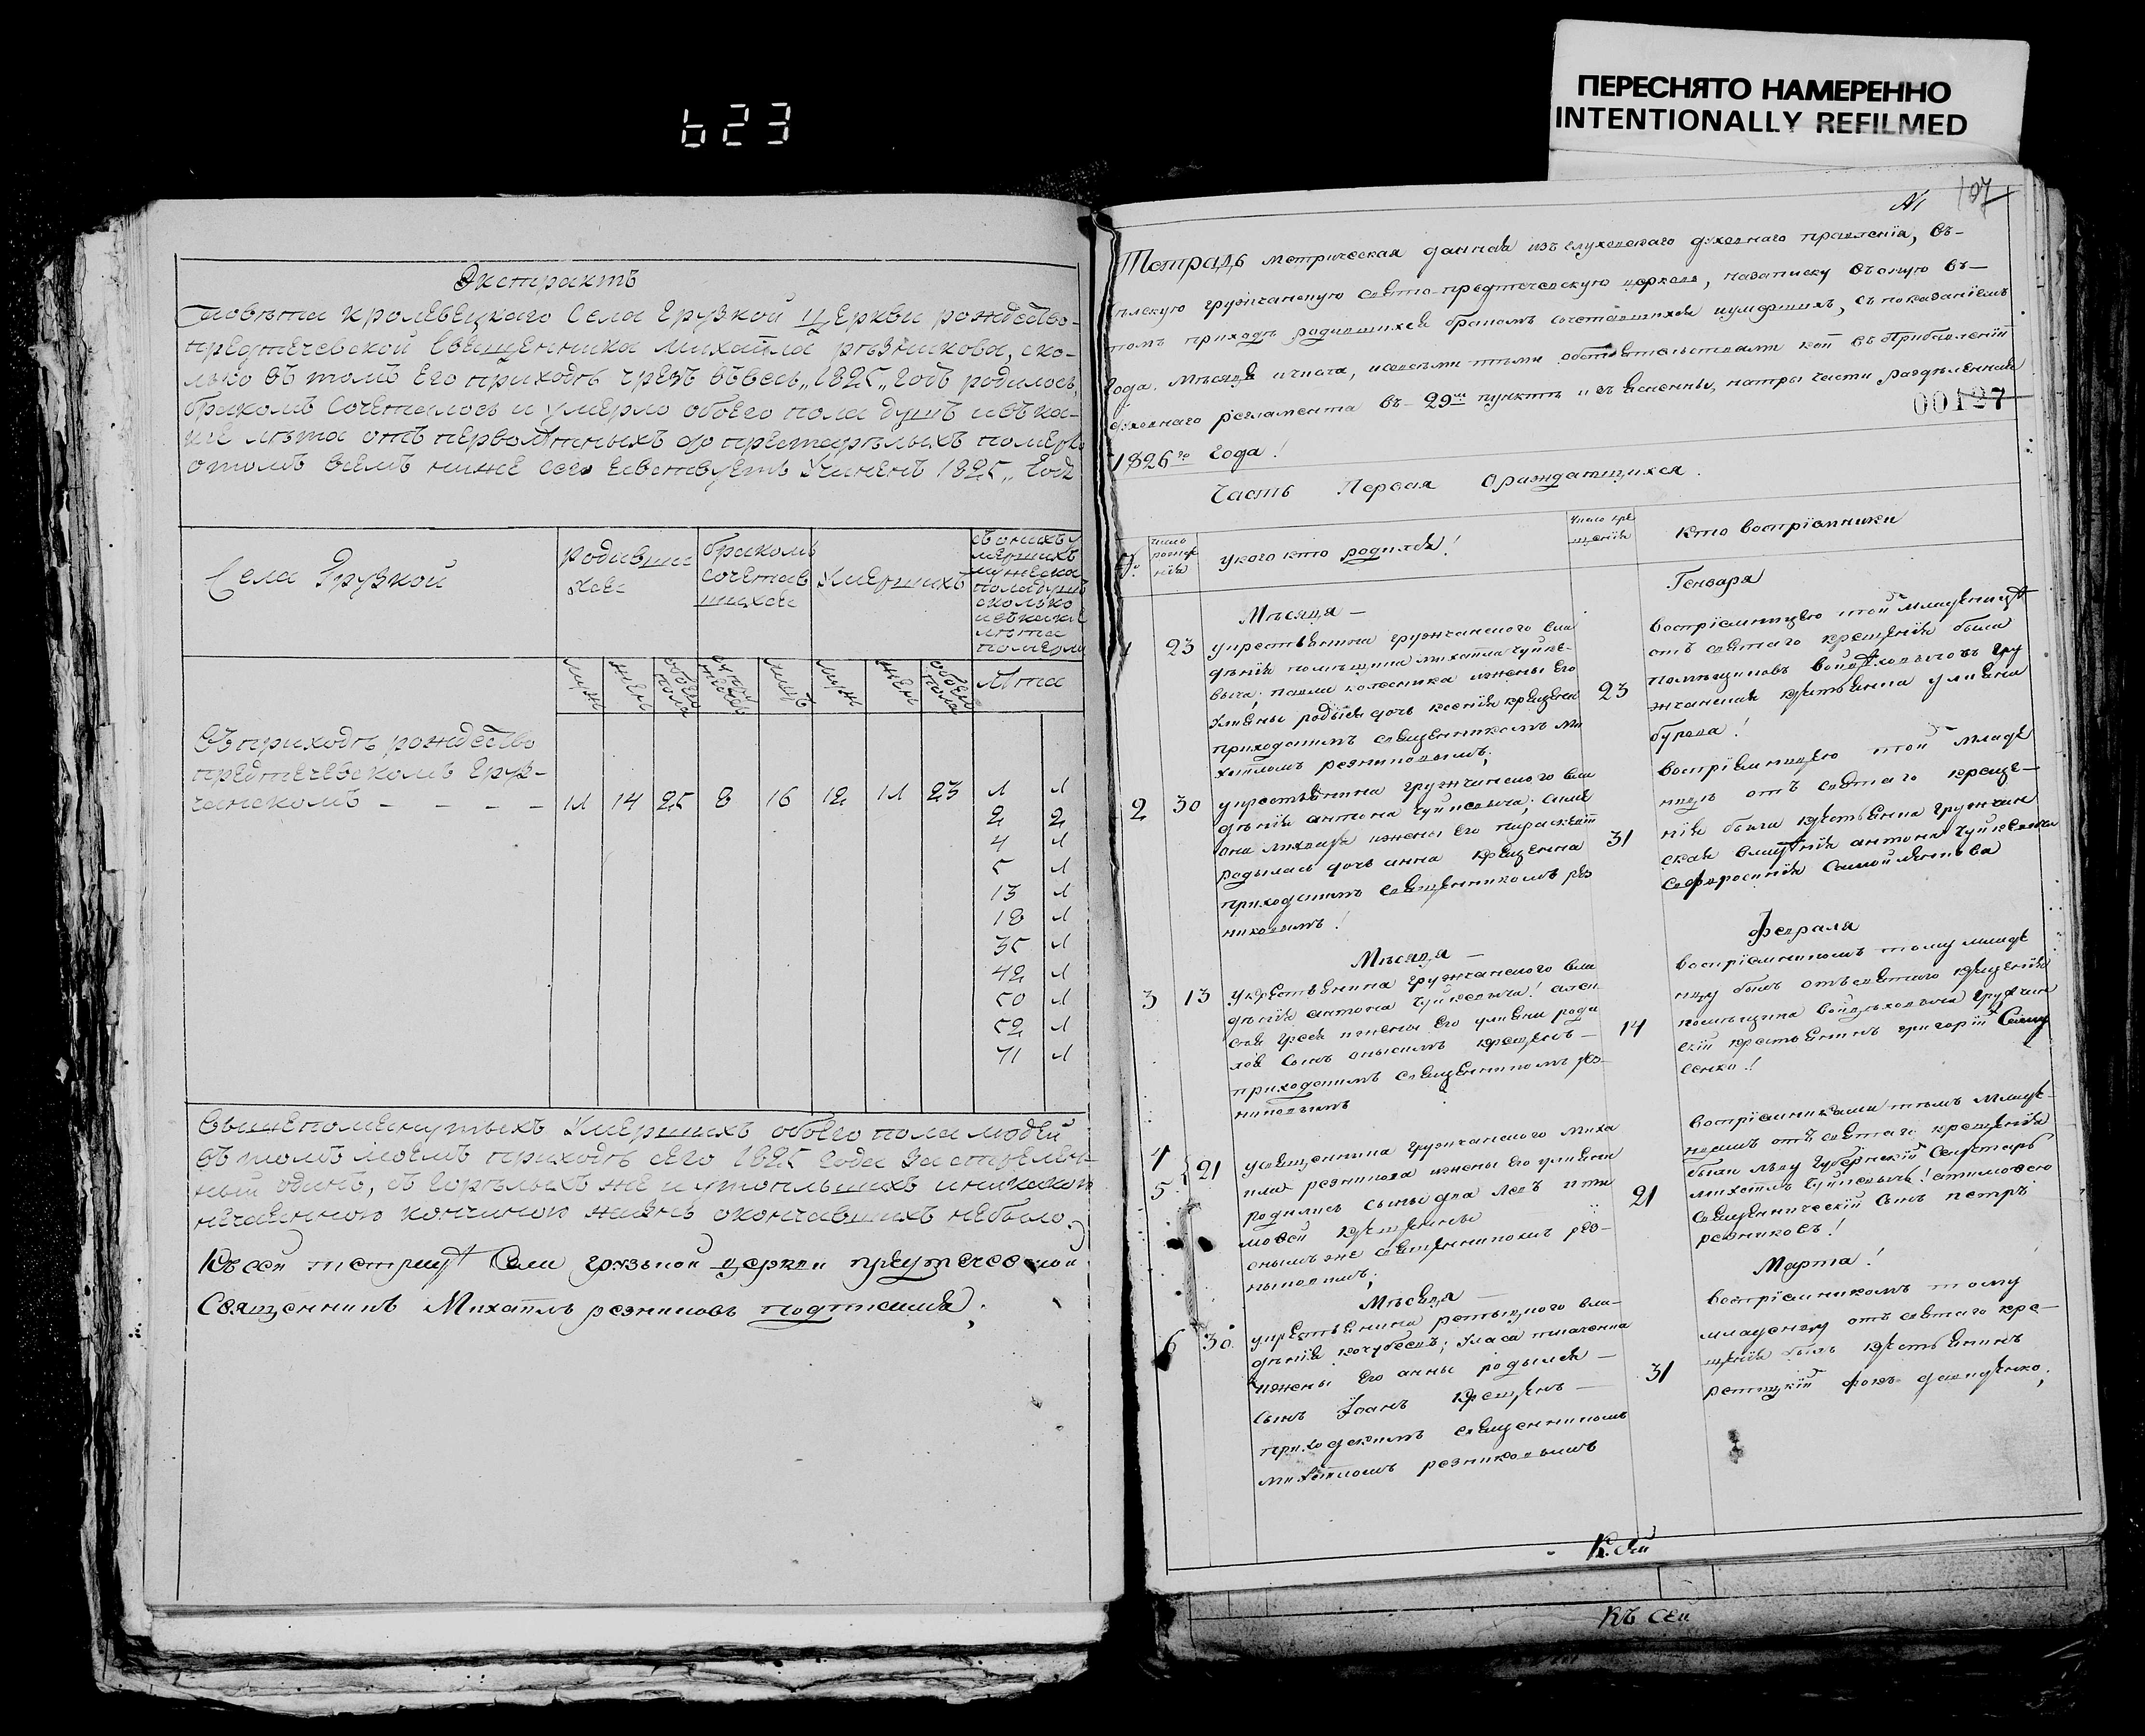 623
ПЕРЕСНЯТО НАМЕРЕННО
INTENTIONALLY REFILMED
Экстрактъ
Повѣта Кролевецкаго Села Грузкой Церкви рождество-
предтечевской Священника Михаила рѣзникова, ско-
лько въ томъ его приходѣ чрезъ въвесь „1825„ Годъ родилось,
бракомъ Сочеталось и умерло обоего пола душъ и въка-
кие лѣта отъ перволѣтныхъ до престарѣлыхъ померло
отомъ всемъ ниже сего Учиненъ 1825„ Годъ
Села Грузкой
родивши
хся
бракомъ
сочетав
шихся
Умершихъ
съ онихъ у
мершихъ
мужеска
пола душъ
сколько
и въ какие
лѣта
померли
мужъ
женъ
обоего пола
лицъ
мужъ
женъ
обоего пола
Лѣта
Въ приходѣ рождество
предтечевскомъ Груз-
чанскомъ - - - -
11 14 25 8 16 12 11 23 1 1
2 2
4 1
5 1
13 1
18 1
35 1
42 1
50 1
52 1
71 1
Свышепомянутыхъ Умершихъ обоего пола людей
въ томъ моемъ приходѣ сего 1825 года застреленный
одинъ, сгорѣлыхъ же и утопльшихъ и никакою
нечаенною кончиною жизнь окончавшихъ небыло.
Къ сей тетради Села грузкой церкви предтечевской
Священникъ Михаилъ резниковъ подписался;
№1
107
Тетрадь метрическая данная изъ глуховскаго духовнаго правленія, въ-
грузчанскую свято-предтечевскую церковь, на записку въ оную въ-
томъ приходѣ родившихся бракомъ сочетавшихся и умершихъ, съ показаніемъ
Года, мѣсяца и числа, и совсѣми тѣми обстоятельствами кои въ Прибавленіи
духовнаго регламента въ-29мъ пунктѣ изъяснены, на три части раздѣленная
00127
1826го Года!
Часть Первая О рождающихся.
число рожденія
у кого кто родился!
число крещенія
кто воспріемники
Мѣсяца - Генваря
1 23
у крестьянина грузчанского вла
дѣнія помѣщика михаила чуйке-
вича; павла колесника и жены его
Улияны родыся дочь ксенія крещена
приходскимъ священникомъ ми
хаиломъ резниковымъ;
23
воспріемницею той младеницѣ
отъ святаго крещенія была
помѣщиковъ войцеховичовъ гру
жчанская крестьянка улияна
бурева!
2 30
у крестьянина грузчанского вла
дѣнія антона чуйкевича;
и жены его параскевіи
родылась дочь анна крещенна
приходскимъ священникомъ рез
никовымъ!
31
воспріемницею той младе
ницѣ отъ святаго креще-
нія была крестьянка грузчан
ская владѣнія антона чуйкевича
Мѣсяца - февраля
3 13
У крестьянина грузчанского вла
дѣнія антона чуйкевича!
и жены его улияны роди
лся сынъ онысимъ крещенъ -
приходскимъ священникомъ рез
никовымъ
14
воспріемникомъ тому младе
нцу былъ отъ святаго крещенія
помѣщика войцеховича грузчан
скій крестьянинъ григорій
4
5 21
у священника грузчанского миха
ила резникова и жены его улияни
родились сыны два Левъ и ти
мофей крещенны
священникомъ рез-
никовимъ;
21
воспріемниками тѣмъ младе-
нцамъ отъ святаго крещенія
были льву Губернскій Секретарь
михаилъ чуйкевичь! а тимофею
священническій сынъ петръ
резниковъ!
Мѣсяца - Марта!
6 30
у крестьянина ретыцкого вла-
дѣнія кочубеевъ; Уласа
и жены его анны родылся -
сынъ Іоанъ крещенъ -
приходскимъ священникомъ
михаиломъ резниковымъ
31
воспріемникомъ тому
младенцу отъ святаго кре-
щенія былъ крестьянинъ
ретицкій фока давиденко;
К. Сей
Къ Сей